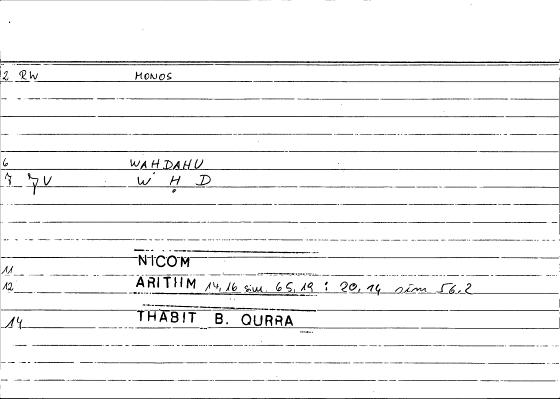 2 RW MONOS
6 WAHDAHU
7 W Ḥ D
11 NICOM
12 ARITHM 14,16 sim. 65,19 : 20,14 sim 56.2
14 THABIT B. QURRA